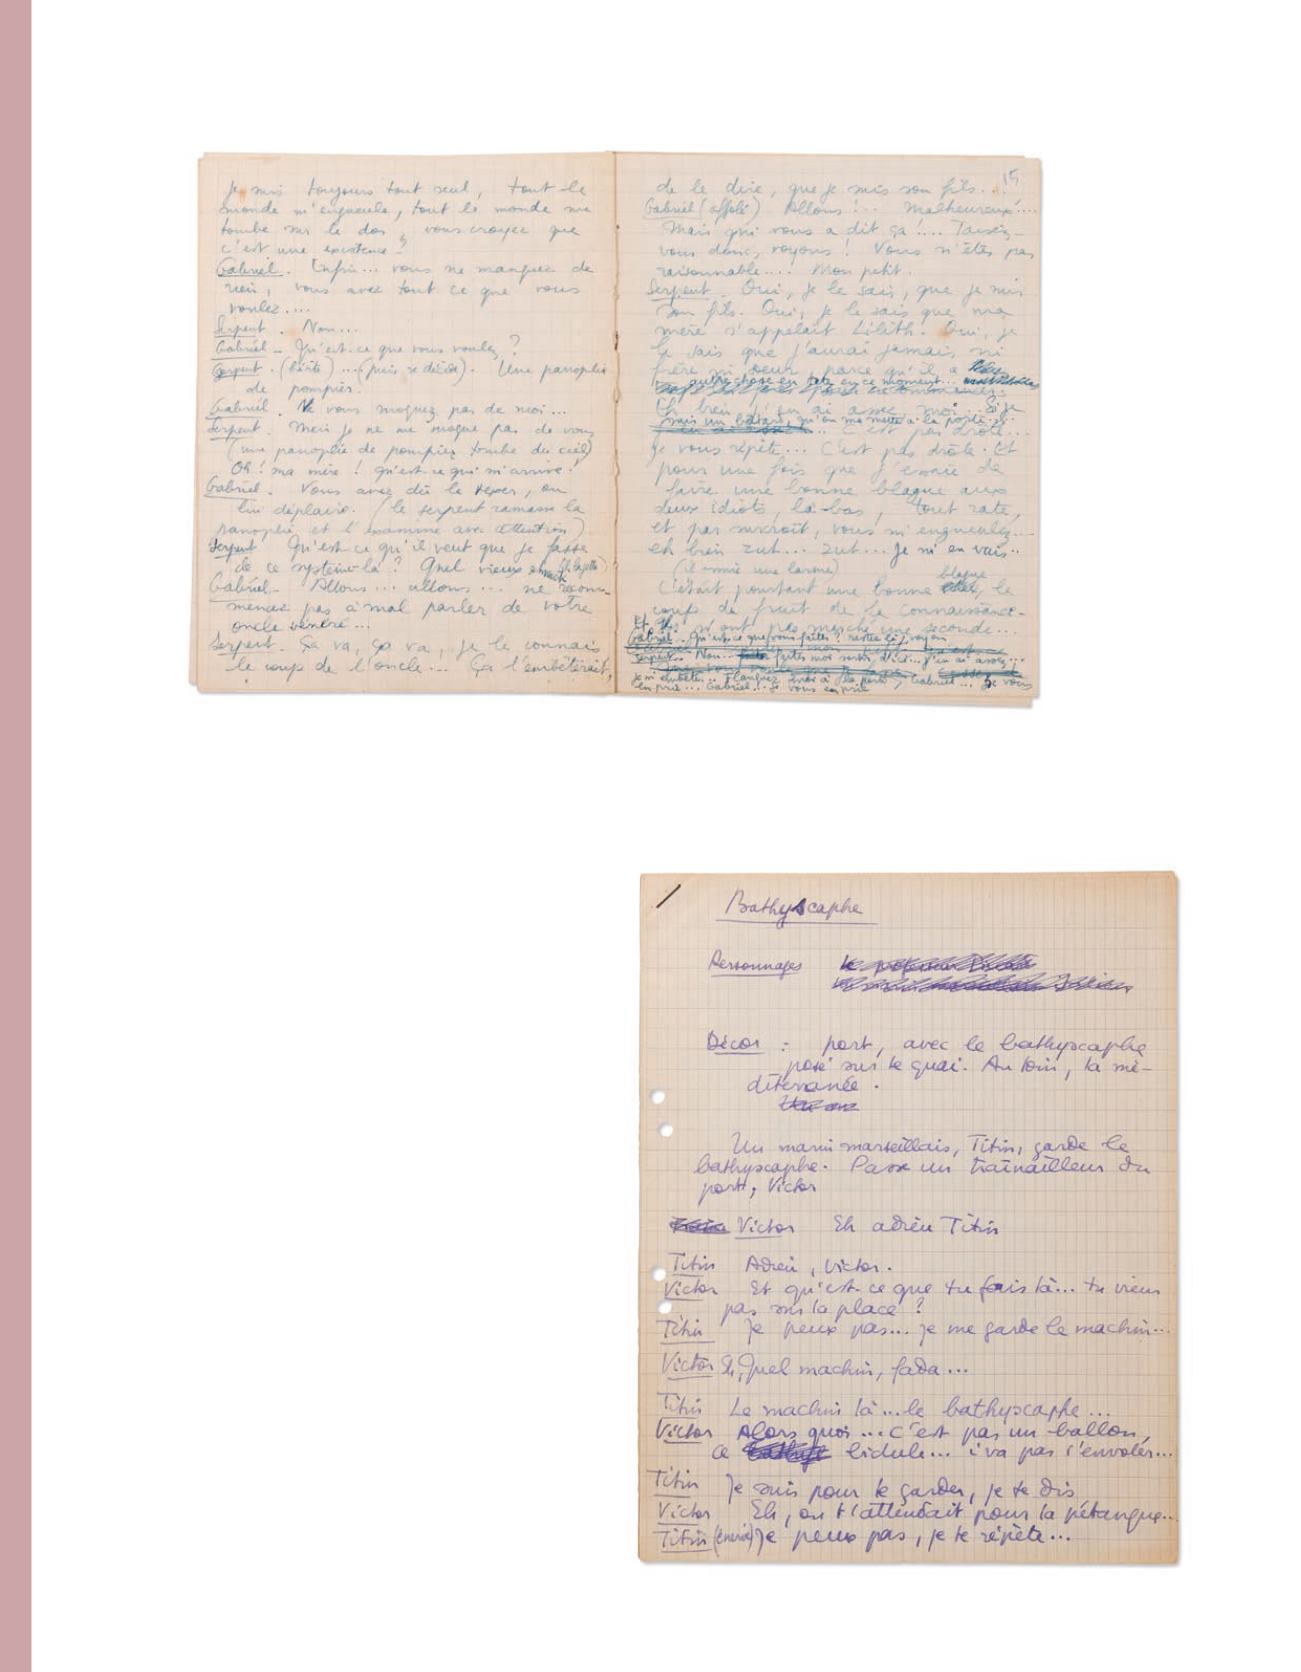 Je suis toujours tout seul, tout le
monde m'engueule, tout le monde me
tombe sur le dos, vous croyez que
c'est une existence ?
Gabriel. Enfin... vous ne manquez de
rien, vous avez tout ce que vous
voulez....
Serpent. Non...
Gabriel - Qu'est-ce que vous voulez ?
Serpent. (hésite) ... (puis se décide). Une panoplie
de pompier.
Gabriel. Ne vous moquez pas de moi...
Serpent. Mais je ne me moque pas de vous
(une panoplie de pompier tombe du ciel)
Oh ! ma mère ! qu'est-ce qui m'arrive !
Gabriel. Vous avez dû le vexer, ou
lui déplaire. (le serpent ramasse la
panoplie et l'examine avec attention)
Serpent Qu'est-ce qu'il veut que je fasse
de ce système-là ? Quel vieux
Gabriel - Allons... allons... ne recom-
mencez pas à mal parler de votre
oncle vénéré...
Serpent. Ça va, ça va, je le connais
le coup de l'oncle... Ça l'embêterait,
15
de le dire, que je suis son fils...
Gabriel (affolé) Allons !.. Malheureux !....
Mais qui vous a dit ça !.... Taisez-
vous donc, voyons ! Vous n'êtes pas
raisonnable.... Mon petit.
Serpent. Oui, je le sais, que je suis
son fils. Oui, je le sais que ma
mère s'appelait Lilith. Oui, je
le sais que j'aurai jamais ni
frère ni soeur, parce qu'il a
autre chose en tête en ce moment...
Eh bien j'en ai assez, moi. Si je
suis un bâtard, qu'on me mette à la porte
... C'est pas drôle...
Je vous répète... C'est pas drôle. Et
pour une fois que j'essaie de
faire une bonne blague aux
deux idiots, là-bas, tout rate,
et par surcroît, vous m'engueulez...
eh bien zut... zut... Je m'en vais..
(il essuie une larme)
C'était pourtant une bonne blague, le
coup du fruit de la connaissance.
Et ils n'ont pas marché une seconde...
Gabriel. Qu'est-ce que vous faites ? restez là, voyons
Serpent. Non... faites moi sortir, d'ici... J'en ai assez...
Je m'embête... Flanquez moi à la porte, Gabriel... Je vous
en prie... Gabriel... Je vous en prie
Bathyscaphe
Personnages
Décor : port, avec le bathyscaphe
posé sur le quai. Au loin, la mé-
diterranée.
Un marin marseillais, Titin, garde le
bathyscaphe. Passe un traînailleur du
port, Victor
Victor Eh adieu Titin
Titin Adieu, Victor.
Victor Et qu'est-ce que tu fais là... tu viens
pas sur la place ?
Titin Je peux pas... je me garde le machin...
Victor Eh, Quel machin, fada...
Titin Le machin là... le bathyscaphe...
Victor Alors quoi... c'est pas un ballon,
ce bidule... i va pas s'envoler...
Titin Je suis pour le garder, je te dis
Victor Eh, on t'attendait pour la pétanque...
Titin (énervé) Je peux pas, je te répète...